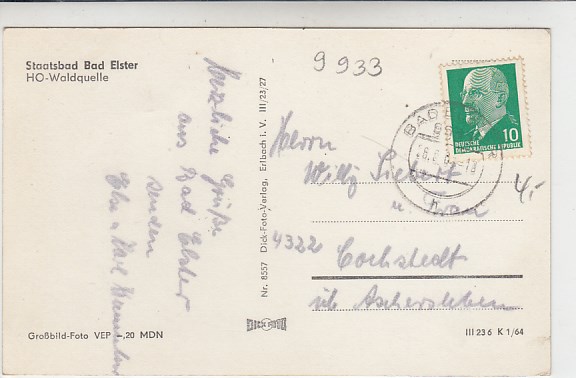 Staatsbad Bad Elster
HO-Waldquelle
9 933
Herzliche Grüße
aus Bad Elster
senden
Nr. 8557 Dick-Foto-Verlag, Erlbach i. V. III/23/27
10
DEUTSCHE
DEMOKRATISCHE REPUBLIK
BAD
Herrn
Willy Siebert
u. Frau
4322 Cochstedt
üb Aschersleben
4,-
Großbild-Foto VEP -,20 MDN
III 23 6 K 1/64